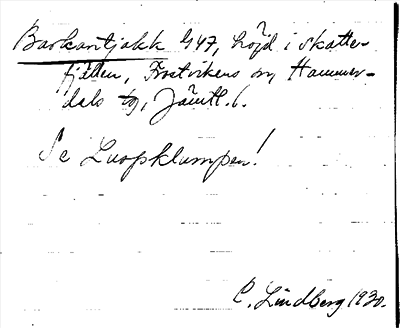 Barkantjakk 947, höjd i Skatte-
fjällen, Frostvikens sn, Hammer-
dals tg, Jämtl. l.
Se Luopklumpen!
C. Lindberg 1930.